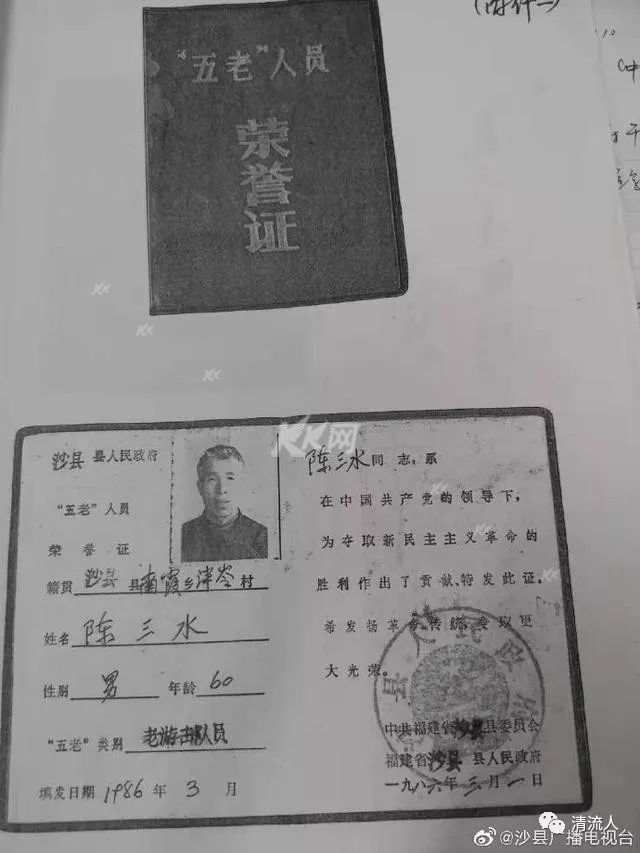 (附件一)
“五老”人员
荣誉证
KK网
沙县 县人民政府
“五老”人员
荣誉证
籍贯 沙县 县 南霞乡 洋岺 村
姓名 陈三水
性别 男 年龄 60
“五老”类别 老游击队员
填发日期 1986 年 3 月
陈三水 同志,系
在中国共产党的领导下,
为夺取新民主主义革命的
胜利作出了贡献,特发此证。
希发扬革命传统,争取更
大光荣。
中共福建省沙县县委员会
福建省沙县 县人民政府
一九八六年三月一日
清流人
@沙县广播电视台